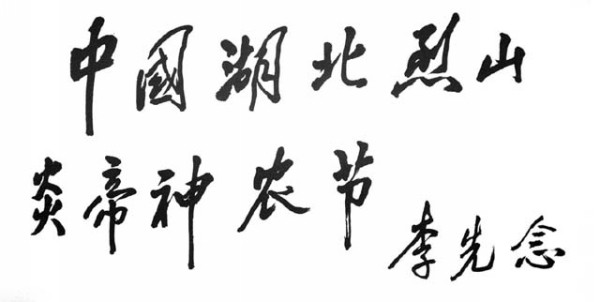 中國湖北烈山
炎帝神农节
李先念